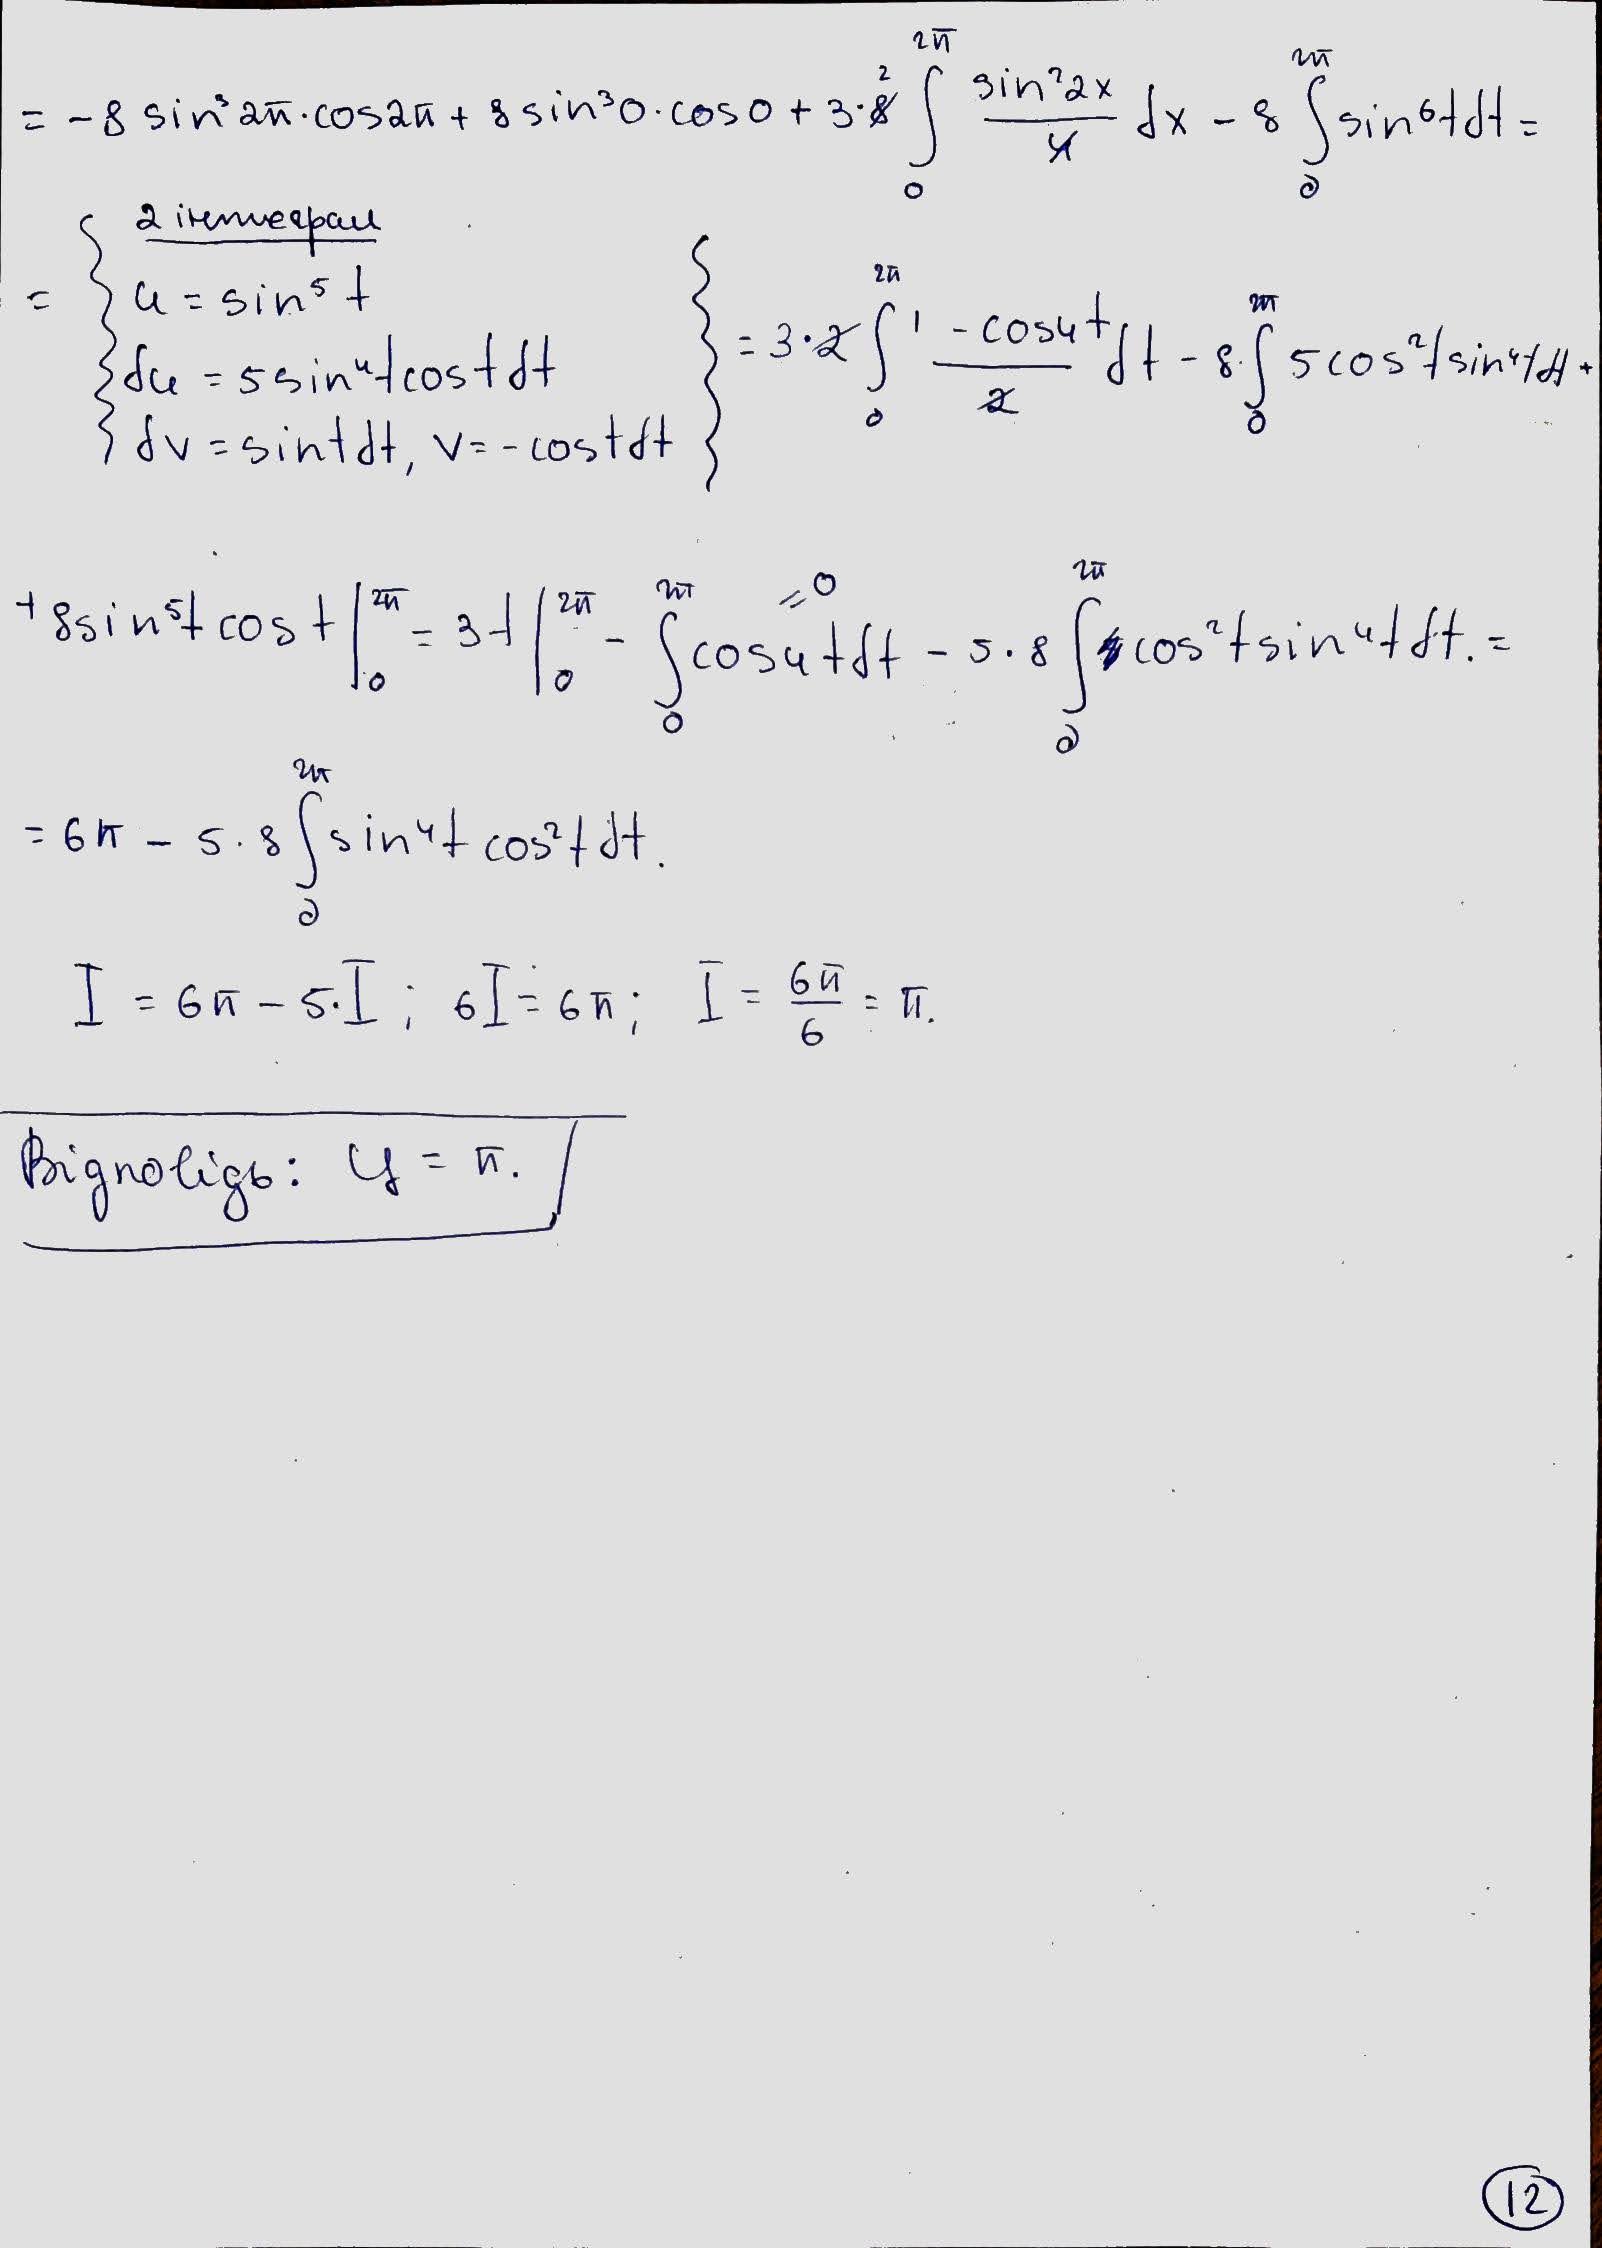 = -8 sin³2π·cos2π + 8 sin³0·cos0 + 3·8 2 ∫₀^{2π} sin²2x/4 dx - 8 ∫₀^{2π} sin⁶t dt =
= { 2 інтеграл
u = sin⁵t
du = 5 sin⁴t cost dt
dv = sint dt, v = -cost dt } = 3·2 ∫₀^{2π} (1 - cos4t)/2 dt - 8·∫₀^{2π} 5 cos²t sin⁴t dt +
+ 8 sin⁵t cost |₀^{2π} = 3t |₀^{2π} - ∫₀^{2π} cos4t dt = 0 - 5·8 ∫₀^{2π} cos²t sin⁴t dt. =
= 6π - 5·8 ∫₀^{2π} sin⁴t cos²t dt.
I = 6π - 5·I; 6I = 6π; I = 6π/6 = π.
Відповідь: Ц = π.
12